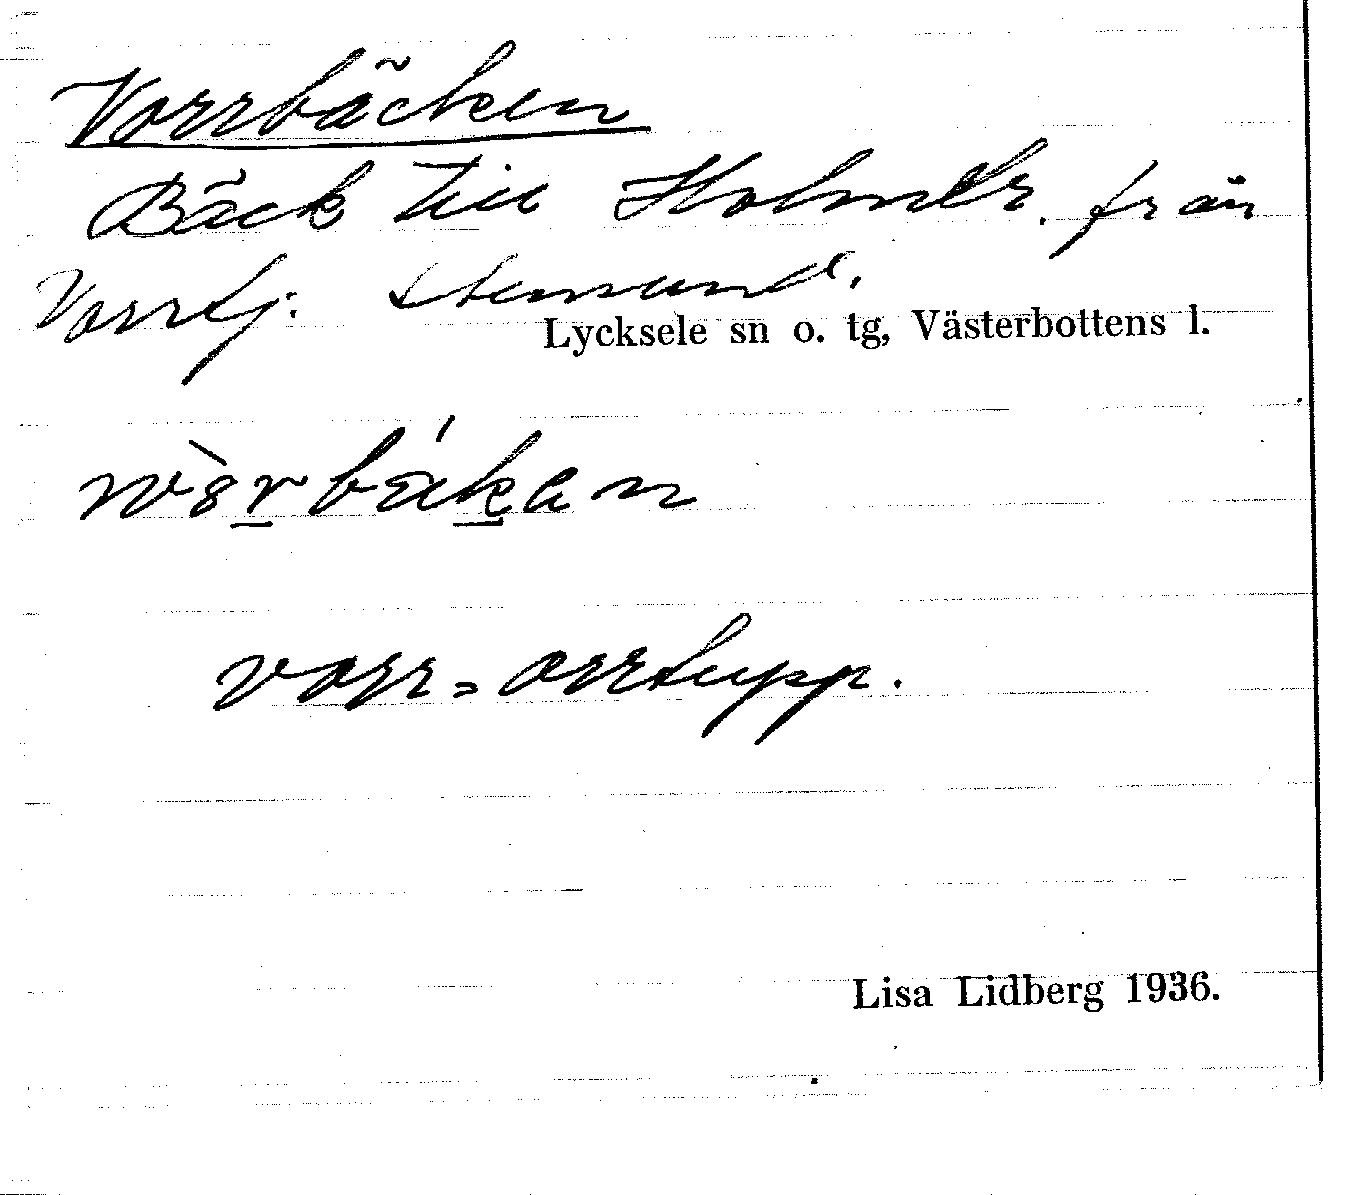 Vorrbäcken
Bäck till Holmtr. från
Vorrtj. Stensund.
Lycksele sn o. tg, Västerbottens l.
vorr = orrtupp.
Lisa Lidberg 1936.